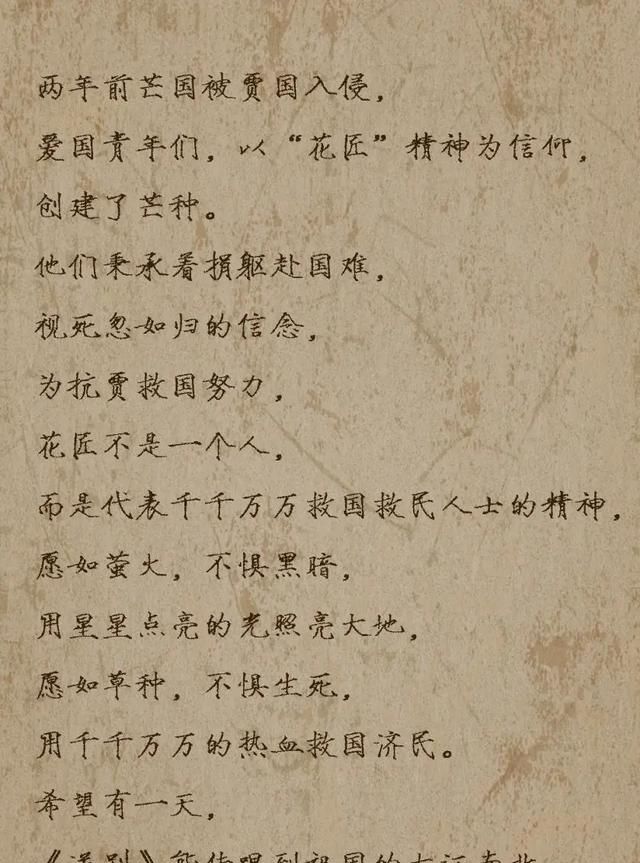 两年前芒国被贾国入侵，
爱国青年们，以“花匠”精神为信仰，
创建了芒种。
他们秉承着捐躯赴国难，
视死忽如归的信念，
为抗贾救国努力，
花匠不是一个人，
而是代表千千万万救国救民人士的精神，
愿如萤火，不惧黑暗，
用星星点亮的光照亮大地，
愿如草种，不惧生死，
用千千万万的热血救国济民。
希望有一天，